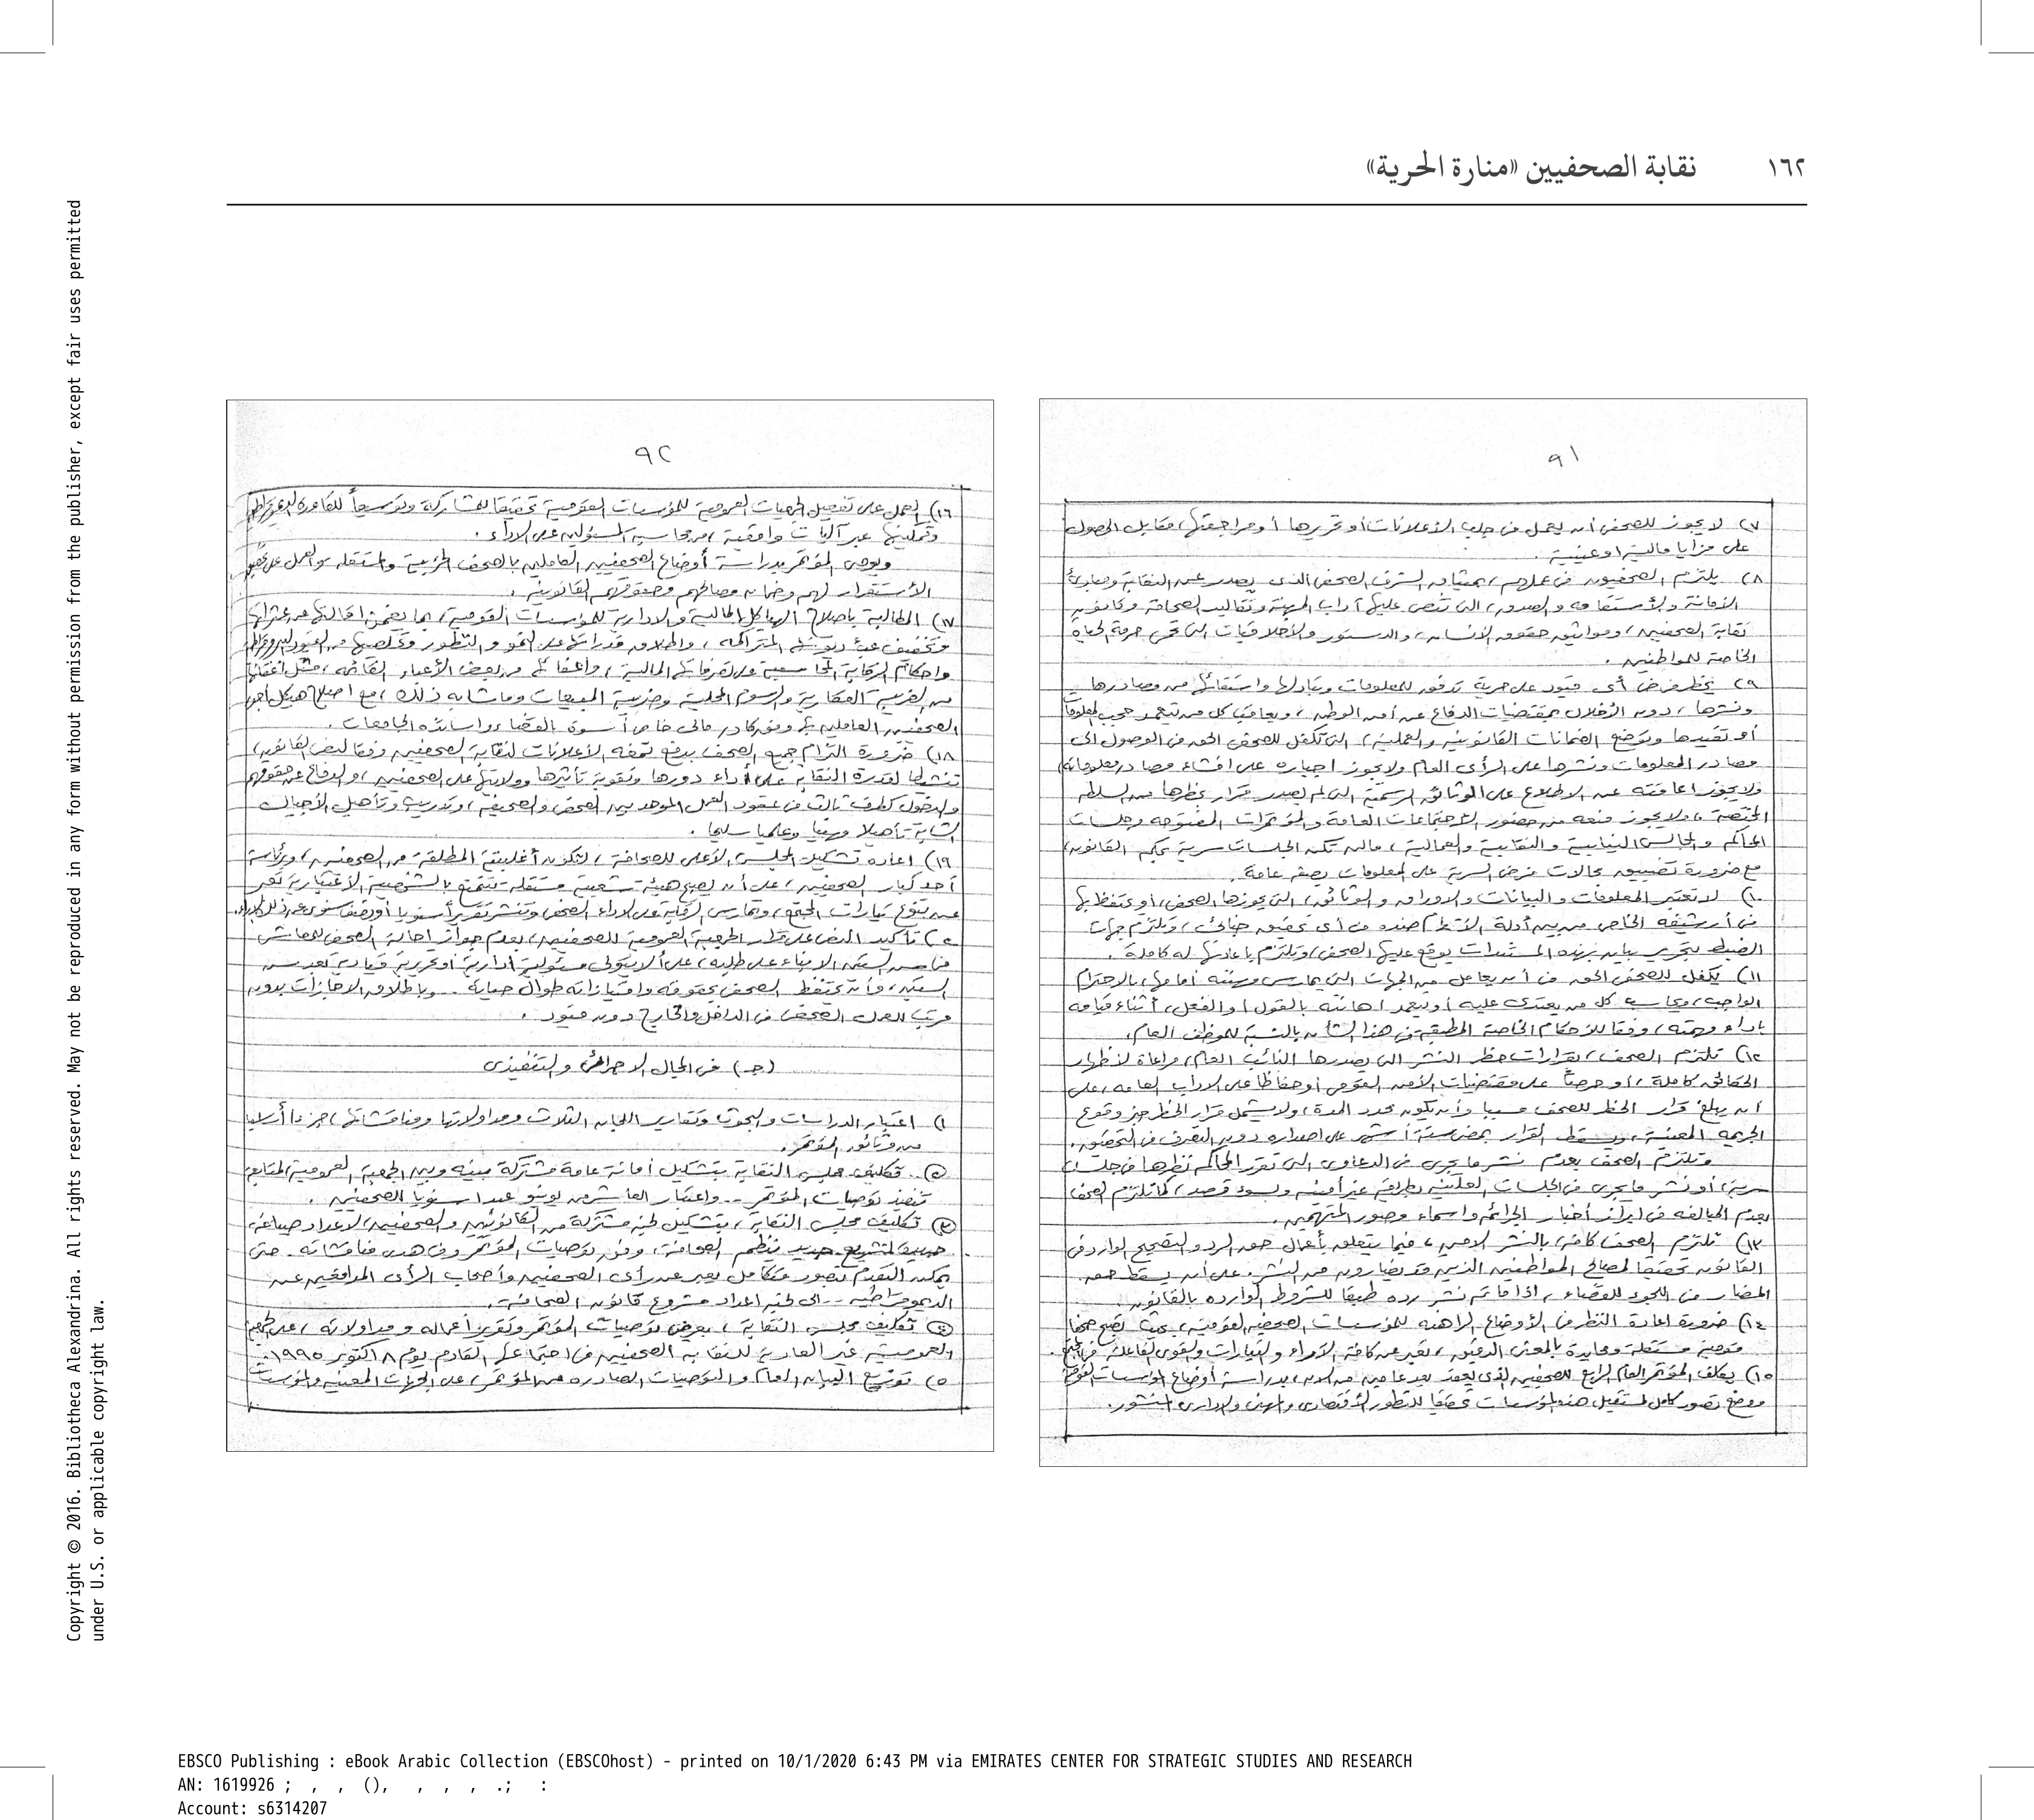 ١٦٢ نقابة الصحفيين «منارة الحرية»
٩١
٧) لا يجوز للصحفى أن يعمل فى جلب الأعلانات أو تحريرها أو مراجعتها، مقابل الحصول
على مزايا مالية أو عينية.
٨) يلتزم الصحفيون فى عملهم، بميثاق الشرف الصحفى الذى يصدر عن النقابة ومبادئ
الأمانة والأستقامه والصدق، التى تنص عليها آداب المهنة وتقاليد الصحافة وقانون
نقابة الصحفيين، ومواثيق حقوق الانسان، والدستور والأخلاقيات التى تحمى حرمة الحياة
الخاصة للمواطنين.
٩) يحظر فرض أى قيود على حرية تدفق المعلومات وتبادلها واستقائها من مصادرها
ونشرها، دون الأخلال بمقتضيات الدفاع عن أمن الوطن، ويعاقب كل من تعمد حجب المعلومات
أو تقيدها وتوضع الضمانات القانونية والعملية، التى تكفل للصحفى الحق فى الوصول الى
مصادر المعلومات ونشرها على الرأى العام ولا يجوز اجباره على افشاء مصادر معلوماته
ولا يجوز اعاقته عن الاطلاع على الوثائق الرسمية التى لم يصدر قرار بحظرها من السلطه
المختصة، ولا يجوز منعه من حضور الأجتماعات العامة والمؤتمرات المفتوحه وجلسات
المحاكم والمجالس النيابية والنقابية والعمالية، مالم تكن الجلسات سرية بحكم القانون،
مع ضرورة تضييق مجالات فرض السرية على المعلومات بصفه عامة.
١٠) لا تعتبر المعلومات والبيانات والاوراق والوثائق، التى يحوزها الصحفى، أو يحتفظ بها
فى أرشيفه الخاص من بين أدلة الأتهام ضده فى أى تحقيق جنائى، وتلتزم جهات
الضبط بتحرير بيان بهذه المستندات يوقع عليها الصحفى، وتلتزم باعادتها له كاملة.
١١) يكفل للصحفى الحق فى أن يعامل من الجهات التى يمارس مهنته أمامها، بالاحترام
الواجب، ويحاسب كل من يعتدى عليه أو يتعمد اهانته بالقول أو الفعل، أثناء قيامه
بأداء مهنته، وفقا للأحكام الخاصة المطبقة فى هذا الشأن بالنسبة للموظف العام.
١٢) تلتزم الصحف، بقرارات حظر النشر التى يصدرها النائب العام، مراعاة لأظهار
الحقائق كاملة، أو حرصاً على مقتضيات الأمن القومى أو حفاظا على الاداب العامه، على
أن يبلغ قرار الحظر للصحف مسببا وأن يكون محدد المدة، ولا يشمل قرار الحظر خبر وقوع
الجريمه المعينة، ويسقط القرار بمضى ستة أشهر على اصداره دون التصرف فى التحقيق.
وتلتزم الصحف بعدم نشر مايجرى فى الدعاوى التى تقرر المحاكم نظرها فى جلسات
سرية، أو نشر مايجرى فى الجلسات العلنيه بطريقه غير أمينه وبسوء قصد، كما تلتزم الصحف
بعدم المبالغه فى ابراز أخبار الجرائم واسماء وصور المتهمين.
١٣) تلتزم الصحف كافة، بالنشر الأمين، فيما يتعلق بأعمال حق الرد والتصحيح الوارد فى
القانون تحقيقا لمصالح المواطنين الذين قد يضارون من النشر، على أن يسقط حق
المضار فى اللجوء للقضاء، اذا ما تم نشر رده طبقا للشروط الوارده بالقانون.
١٤) ضرورة اعادة النظر فى الأوضاع الراهنه للمؤسسات الصحفيه القومية، بحيث تصبح صحفا
قومية مستقلة ومحايدة بالمعنى الدقيق، تعبر عن كافة الآراء والتيارات والقوى الفاعلة فى المجتمع.
١٥) يكلف المؤتمر العام الرابع للصحفيين الذى يعقد بعد عامين من الان، بدراسة أوضاع المؤسسات القومية
ووضع تصور كامل لمستقبل هذه المؤسسات تحقيقا للتطور الأقتصادى والمهنى والادارى المنشور.
٩٢
١٦) العمل على تفعيل الجمعيات العمومية للمؤسسات القومية تحقيقا للمشاركة وتوسيعاً للقاعدة الديمقراطية
وتمكينها عبر آليات واقعية، من محاسبة المسئولين عن الأداء.
ويوصى المؤتمر بدراسة أوضاع الصحفيين العاملين بالصحف الحزبية والمستقله والعمل على تحقيق
الأستقرار لهم وضمان مصالحهم وحقوقهم القانونية.
١٧) المطالبة باصلاح الهياكل المالية والادارية للمؤسسات القومية، بما يضمن اقالتها من عثراتها
وتخفيف عبء ديونها المتراكمه، واطلاق قدراتها على النمو والتطور وتخلصها من القيود البيروقراطية
واحكام الرقابة المحاسبية على تصرفاتها المالية، واعفائها من بعض الأعباء القائمه، مثل اعفائها
من الضريبة العقارية والرسوم المحلية وضريبة المبيعات وماشابه ذلك، مع اصلاح هيكل أجور
الصحفيين العاملين بها وفق كادر مالى خاص أسوة بالقضاء وأساتذه الجامعات.
١٨) ضرورة التزام جميع الصحف بدفع نسبة الأعلانات لنقابة الصحفيين وفقا لنص القانون،
تنشيطا لقدرة النقابة على أداء دورها وتقوية تأثيرها وولايتها على الصحفيين، والدفاع عن حقوقهم
والدخول كطرف ثالث فى عقود العمل الموحد بين الصحفى والصحيفة، وتدريب وتأهيل الأجيال
الشابة تأهيلا مهنيا وعلميا سليما.
١٩) اعاده تشكيل المجلس الأعلى للصحافة، لتكون أغلبيته المطلقة من الصحفيين، وبرئاسة
أحد كبار الصحفيين، على أن يصبح هيئة شعبية مستقلة تتمتع بالشخصية الأعتبارية تعبر
عن تنوع تيارات المجتمع، وتمارس الرقابة على الاداء الصحفى وتنشر تقريراً سنويا أو نصف سنوى عن ذلك الاداء.
٢٠) تأكيد النص على قرار الجمعية العمومية للصحفيين، بعدم جواز احالة الصحفى للمعاش
فى سن الستين الا بناء على طلبه، على ألا يتولى مسئولية أدارية أو تحريرية قيادية بعد سن
الستين، وأن يحتفظ الصحفى بحقوقه وامتيازاته طوال حياته.. وباطلاق الاجازات بدون
مرتب للعمل الصحفى فى الداخل والخارج دون قيود.
(جـ) فى المجال الاجرائى والتنفيذى
١) اعتبار الدراسات والبحوث وتقارير اللجان الثلاث ومداولاتها ومناقشاتها، جزءا أساسيا
من وثائق المؤتمر.
٢) تكليف مجلس النقابة بتشكيل أمانة عامة مشتركة بينه وبين الجمعية العمومية لمتابعة
تنفيذ توصيات المؤتمر.. واعتبار العاشر من يونيو عيدا سنويا للصحفيين.
٣) تكليف مجلس النقابة، بتشكيل لجنة مشتركة من القانونيين والصحفيين، لاعداد صياغة
لتشريع جديد ينظم الصحافة، وفق توصيات المؤتمر وفى هدى مناقشاته.. حتى
يمكن التقدم بتصور متكامل يعبر عن رأى الصحفيين وأصحاب الرأى المدافعين عن
الديموقراطيه.. الى لجنة اعداد مشروع قانون الصحافة.
٤) تكليف مجلس النقابة، بعرض توصيات المؤتمر وتقرير أعماله ومداولاته، على الجمعية
العمومية غير العادية لنقابة الصحفيين فى اجتماعها القادم يوم ٨ اكتوبر ١٩٩٥.
٥) توزيع البيان العام والتوصيات الصادره عن المؤتمر، على الجهات المعنيه والمؤسسات
Copyright © 2016. Bibliotheca Alexandrina. All rights reserved. May not be reproduced in any form without permission from the publisher, except fair uses permitted
under U.S. or applicable copyright law.
EBSCO Publishing : eBook Arabic Collection (EBSCOhost) - printed on 10/1/2020 6:43 PM via EMIRATES CENTER FOR STRATEGIC STUDIES AND RESEARCH
AN: 1619926 ; , , (), , , , .; :
Account: s6314207